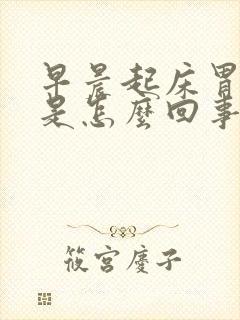 早晨起床胃
是怎麼回事
筱宮慶子